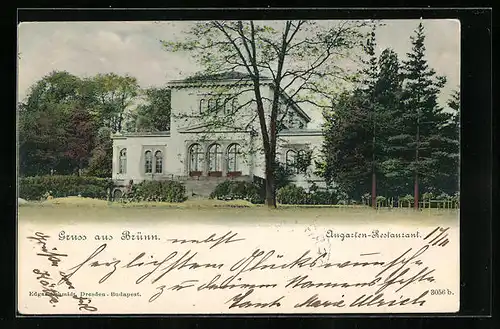 Gruss aus Brünn. nebst Augarten-Restaurant. 17/11
herzlichsten Glückwünsche
zu deinem Namensfeste
Marie Ulrich
Edgar Schmidt, Dresden-Budapest. 3056 b.